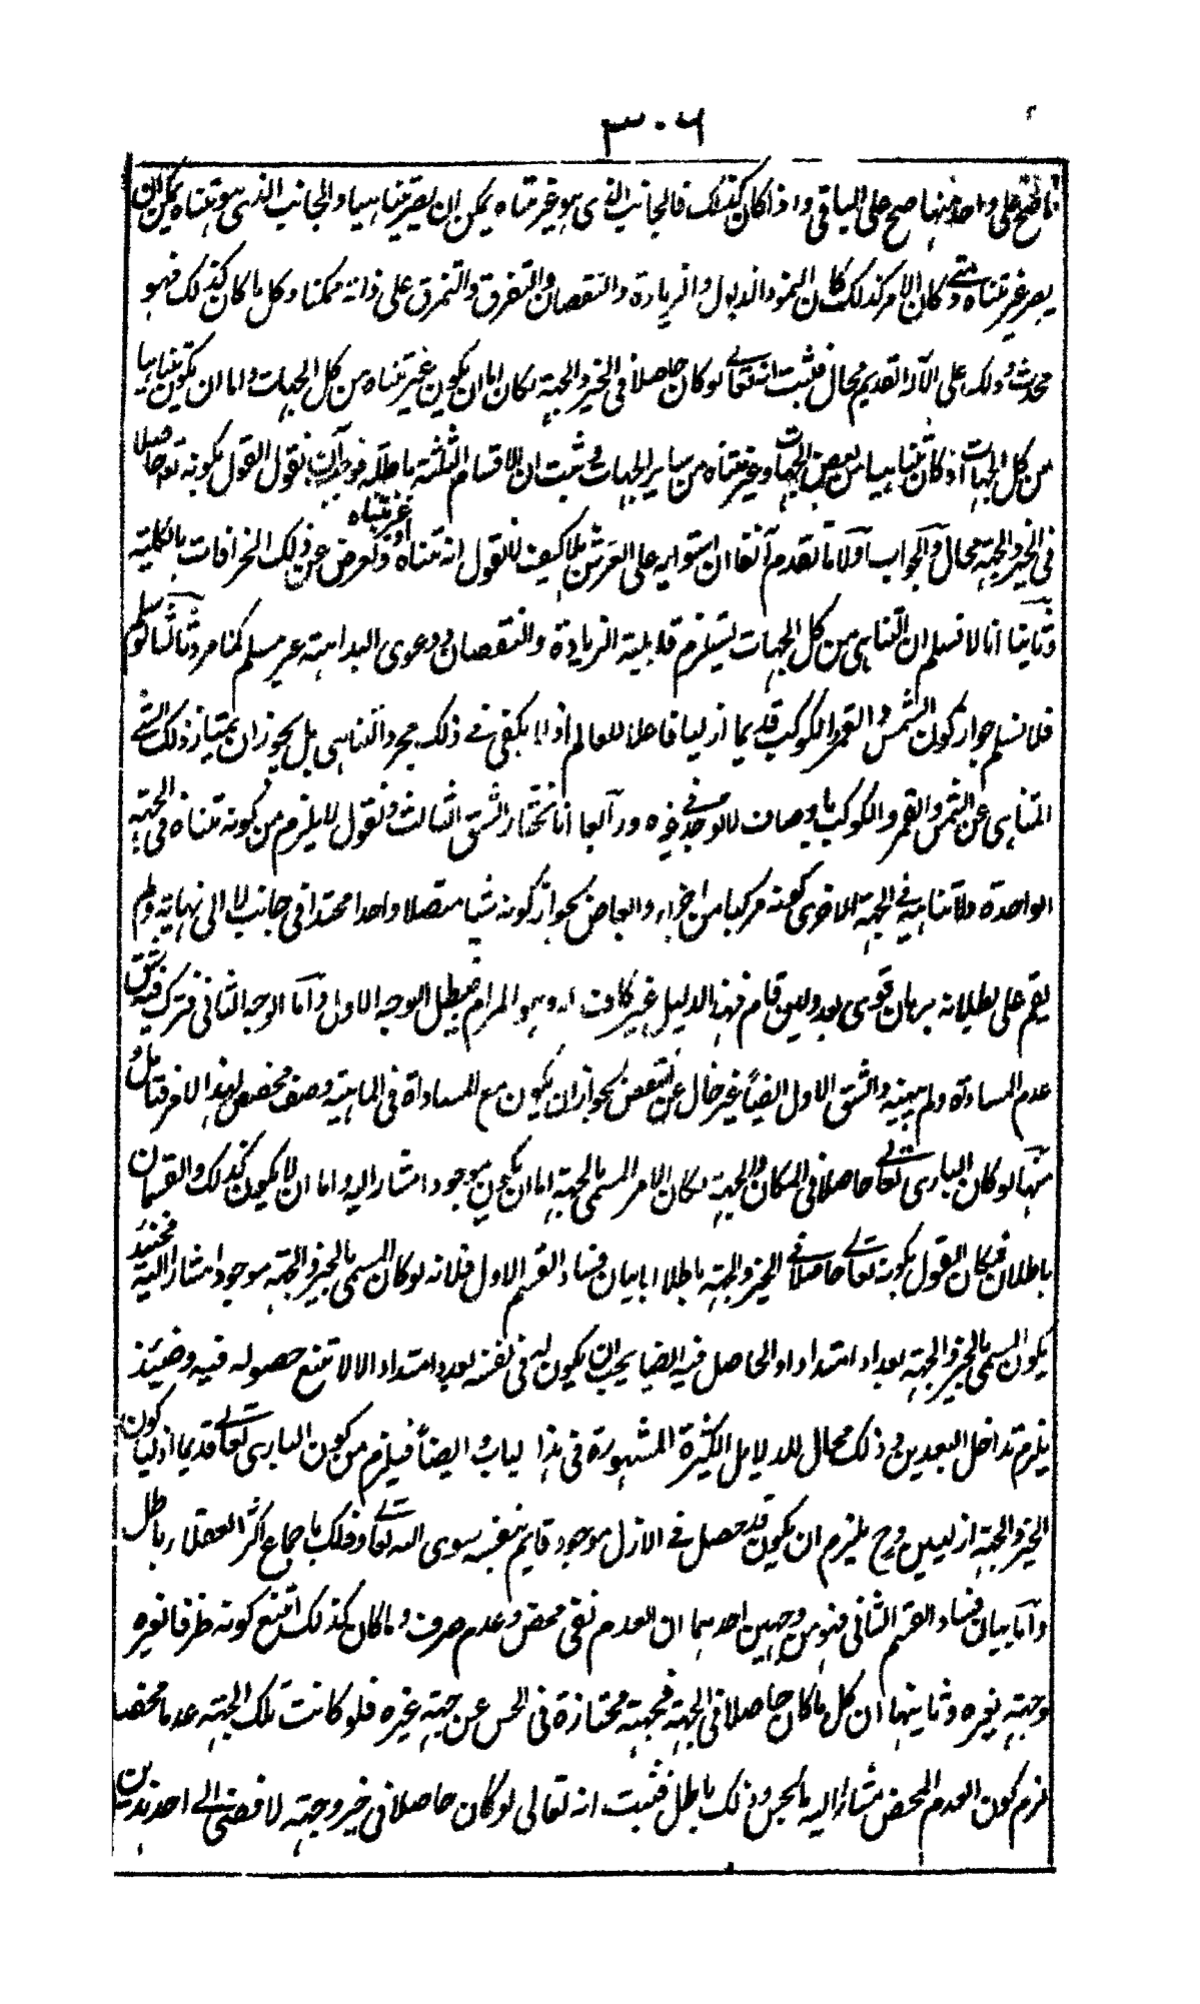 ٣٠٦
فما صح على واحد منها صح على الباقي واذا كان كذلك فالجانب الذي هو غير متناه يمكن ان يصير متناهيا والجانب الذي هو متناه يمكن ان
يصير غير متناه ومتى كان الامر كذلك كان النمو والذبول والزيادة والنقصان والتفرق والتمزق على ذاته ممكنا وكل ما كان كذلك فهو
محدث وذلك على الآله القديم محال فثبت انه تعالى لو كان حاصلا في الحيز والجهة لكان اما ان يكون غير متناه من كل الجهات واما ان يكون متناهيا
من كل الجهات او كان متناهيا من بعض الجهات وغير متناه من ساير الجهات وثبت ان الاقسام الثلثة باطلة فوجب ان نقول القول بكونه تعالى حاصلا
في الحيز والجهة محال والجواب اولا ما تقدم آنفا ان استوايه على العرش بلا كيف فلا نقول انه متناه او غير متناه ونعرض عن ذلك الخرافات بالكلية
وثانيا انا لا نسلم ان التناهي من كل الجهات يستلزم قابلية الزيادة والنقصان ودعوى البداهة غير مسلم كما مر وثالثا لو سلم
فلا نسلم جواز كون الشمس والقمر والكوكب قديما ازليا فاعلا للعالم اذ لا يكفي في ذلك مجرد التناهي بل يجوز ان يمتاز ذلك الشئ
المتناهي عن الشمس والقمر والكوكب باوصاف لا توجد في غيره ورابعا انا نختار الشق الثالث ونقول لا يلزم من كونه متناه في الجهة
الواحدة ولا تناهيه في الجهة الاخرى كونه مركبا من اجزاء وابعاض بجواز كونه شيا متصلا واحدا ممتدا في جانب لا الى نهاية ولم
يقم على بطلانه برهان قوي بعد ولئن قام فهذا الدليل غير كاف له وهو المرام فبطل الوجه الاول واما الوجه الثاني فترك فيه شق
عدم المساوة ولم يبينه والشق الاول ايضا غير خال عن النقض بجواز ان يكون مع المساواة في الماهية وصف مخصص لهذا الامر فتامل و
منها لو كان الباري تعالى حاصلا في المكان والجهة لكان الامر المسمى بالجهة اما ان يكون موجودا مشارا اليه واما ان لا يكون كذلك والقسمان
باطلان فكان القول بكونه تعالى حاصلا في الحيز والجهة باطلا اما بيان فساد القسم الاول فلانه لو كان المسمى بالحيز والجهة موجودا مشارا اليه فحينئذ
يكون المسمى بالحيز والجهة بعدا وامتدادا والحاصل فيه ايضا يجب ان يكون له في نفسه بعد وامتداد الا لامتنع حصوله فيه وحينئذ
يلزم تداخل البعدين وذلك محال للدلايل الكثيرة المشهورة في هذا الباب وايضا فيلزم من كون الباري تعالى قديما ازليا كون
الحيز والجهة ازليين وح يلزم ان يكون قد حصل في الازل موجود قايم بنفسه سوى الله تعالى وذلك باجماع اكثر العقلاء باطل
واما بيان فساد القسم الثاني فهو من وجهين احدهما ان العدم نفي محض وعدم صرف وما كان كذلك امتنع كونه ظرفا لغيره
وجهة لغيره وثانيها ان كل ما كان حاصلا في الجهة فجهته ممتازة في الحس عن جهة غيره فلو كانت تلك الجهة عدما محضا
لزم كون العدم المحض مشارا اليه بالحس وذلك باطل فثبت انه تعالى لو كان حاصلا في حيز وجهة لافضى الى احد هذين